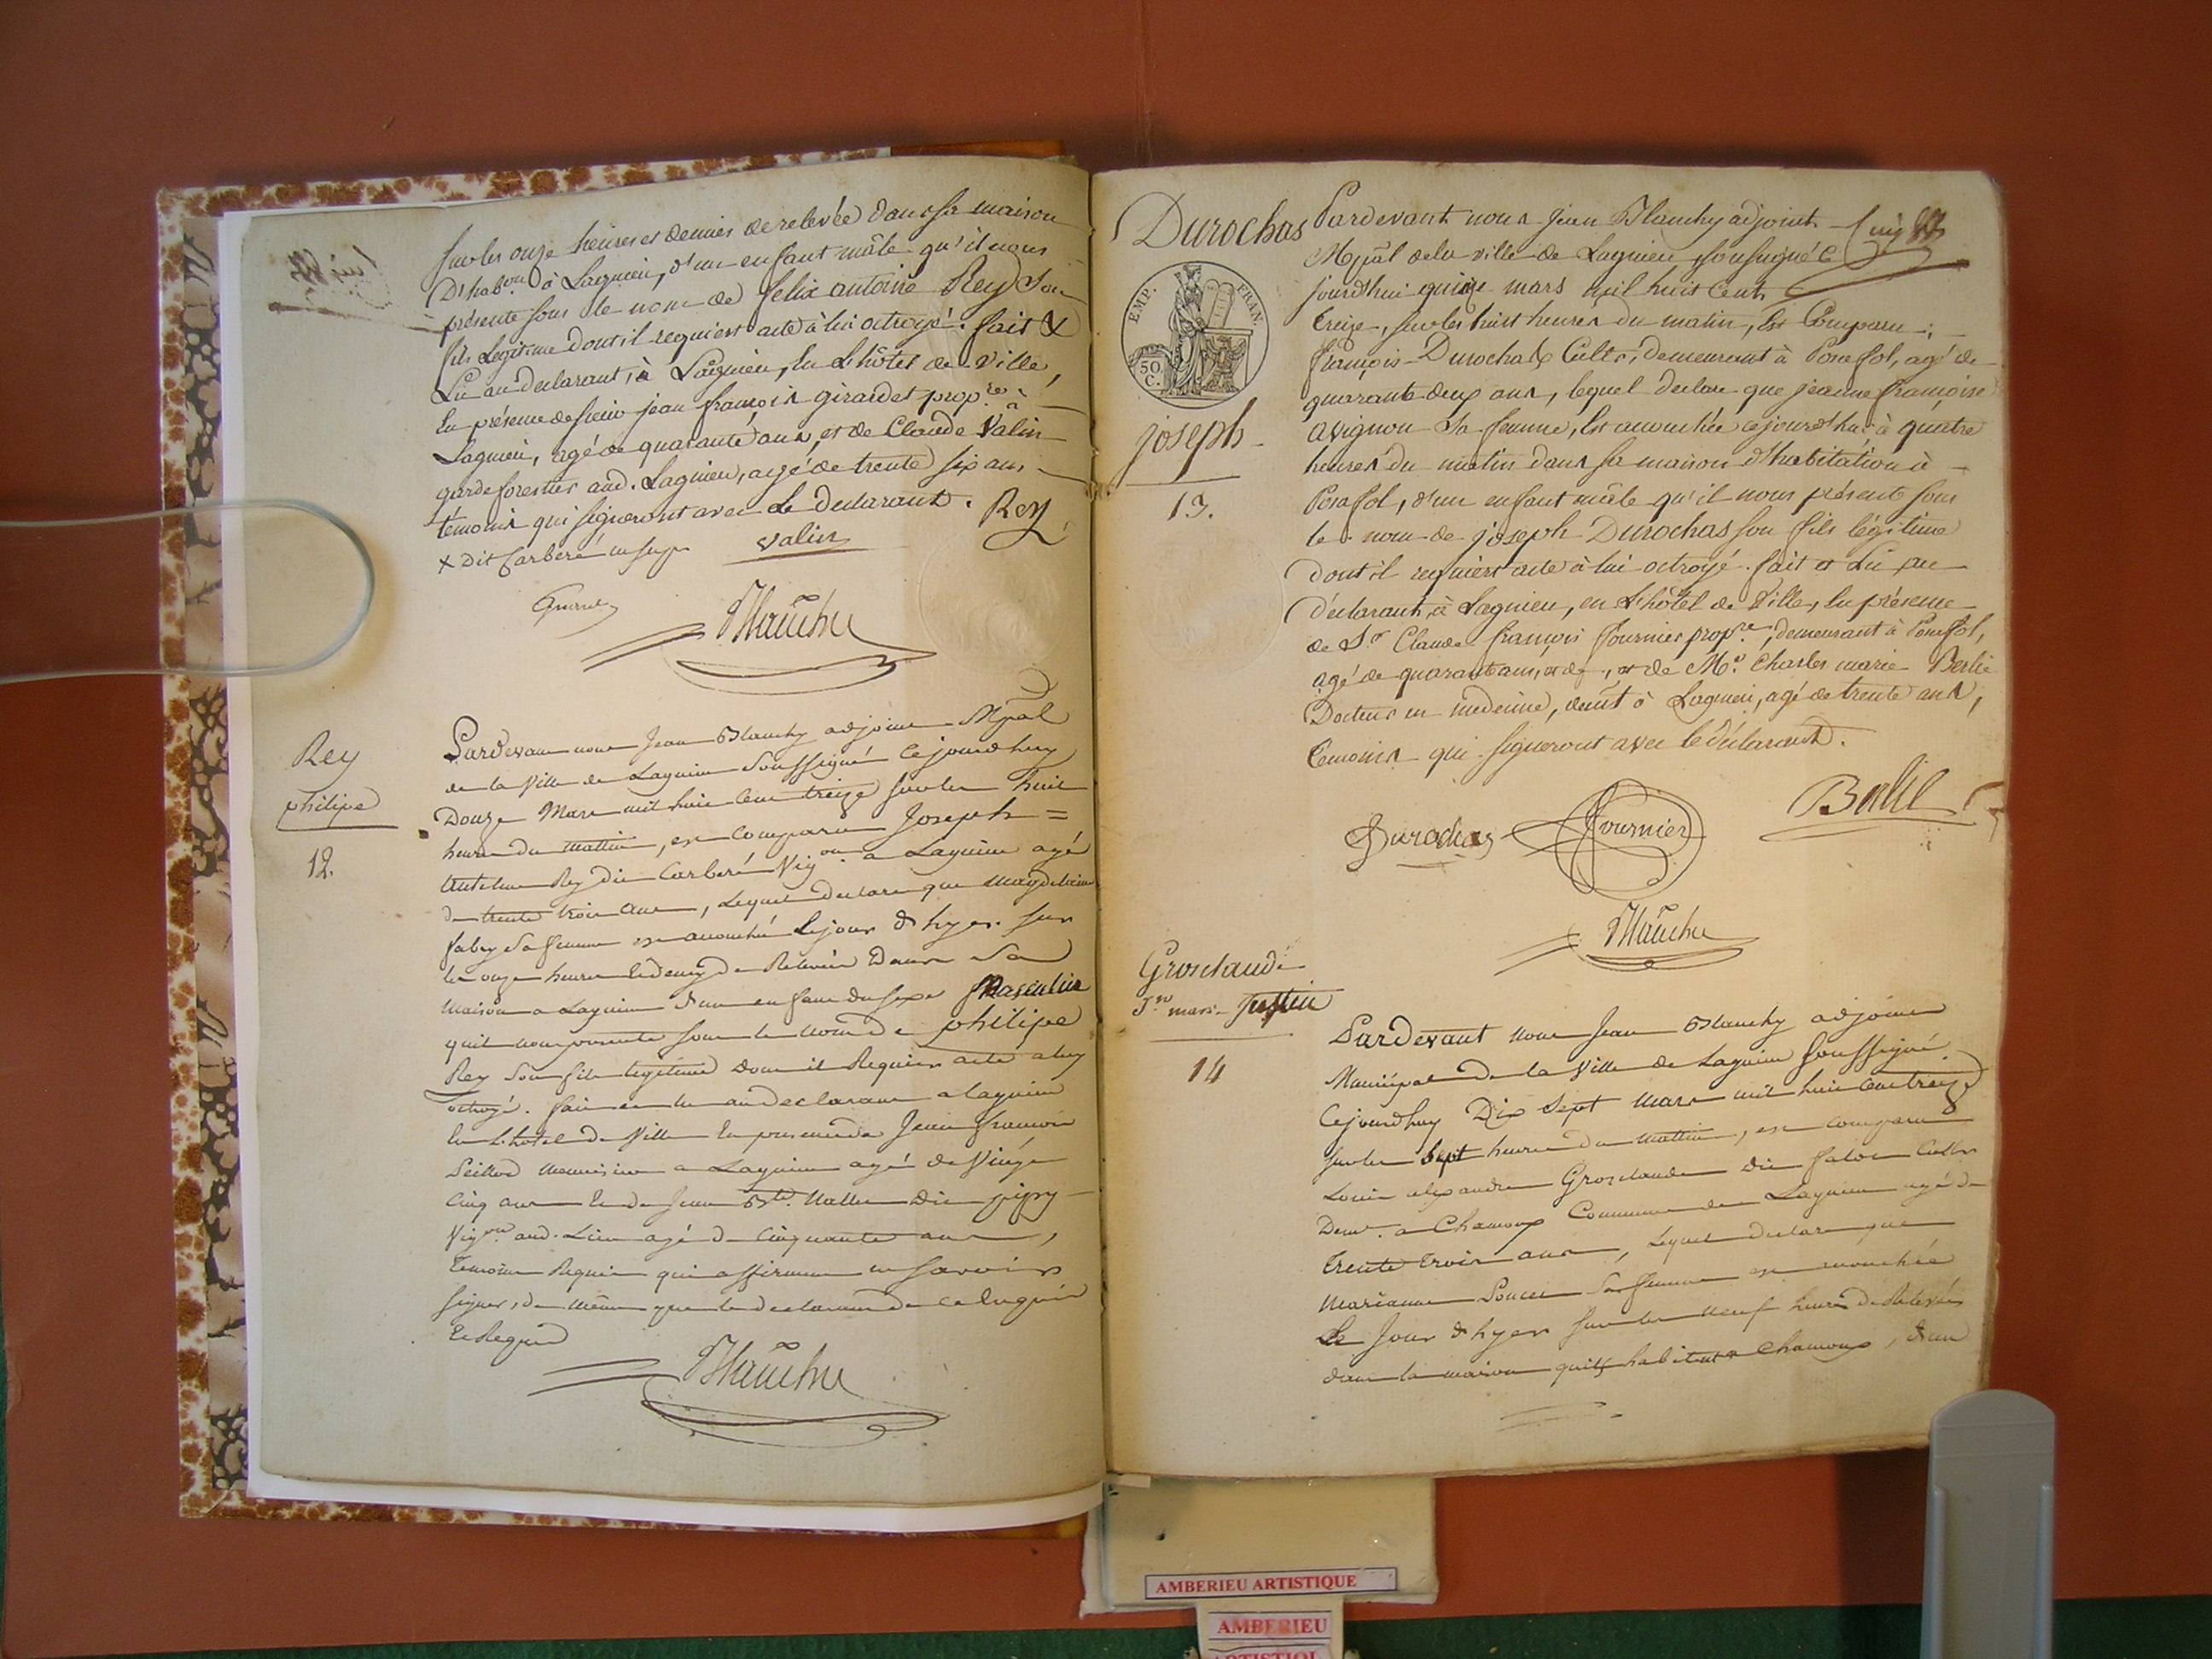 sur les onze heures et demies de relevée dans sa maison
D'hab.on à Lagnieu, d'un enfant mâle qu'il nous
présente sous le nom de felix antoine Rey son
fils Legitime dont il requiert acte à lui octroyé. fait &
Lu au declarant, à Lagnieu, en L'hôtel de Ville,
En présence de sieur jean françois girardet prop.re à
Lagnieu, agé de quarante ans, et de Claude Valin
garde forestier aud. Lagnieu, agé de trente six ans
témoins qui signeront avec Le declarant. Rey
x dit Carberé
valin
Blanchy
Rey
philipe
12.
Pardevant nous Jean Blanchy adjoint Mpal
de la Ville de Lagnieu Soussigné Cejourdhuy
Douze Mars mil huit Cent treize sur les huit
heures du mattin, est comparu Joseph =
Antelme Rey dit Carberé Vig.on a Lagnieu agé
de trente trois ans, Lequel declare que magdelaine
fabry sa femme est accouchée Le jour d'hyer sur
les onze heures et demy de Relevée Dans Sa
maison a Lagnieu d'un enfant du sexe Masculin
quil nous presente sous le nom de philipe
Rey Son fils legitime dont il Requiert acte a luy
octroyé. fait et lu au declarant a lagnieu
En L'hotel de Ville En presence de Jean françois
menuisier a Lagnieu agé de Vingt
Cinq ans et de Jean B.te Vallin Dit
Vig.on aud. Lieu agé de Cinquante ans,
temoins Requis qui affirment ne savoir
signer, de même que le declarant de ce Enquis
Et Requis
Blanchy
Durochas
EMP. FRAN.
50 C.
joseph
13.
Pardevant nous Jean Blanchy adjoint
Mpâl de la ville de Lagnieu soussigné Ce
jourdhui quinze mars mil huit Cent
treize, sur les huit heures du matin, Est Comparu
françois Durochas Cult.r, demeurant à Posafol, agé de
quarante deux ans, lequel declare que jeanne françoise
avignon Sa femme, Est accouchée cejourdhui à quatre
heures du matin dans sa maison d'habitation à
Posafol, d'un enfant mâle qu'il nous présente sous
le nom de joseph Durochas son fils légitime
dont il requiert acte à lui octroyé. fait et Lu au
déclarant, à Lagnieu, en L'hôtel de Ville, En présence
de S.r Claude françois fournier prop.re, demeurant à Posafol,
agé de quarante ans, et de , et de M.r Charles marie Berlie
Docteur en medecine, demt à Lagnieu, agé de trente ans,
temoins qui signeront avec le déclarant.
Durochas
fournier
Berlie
Blanchy
Grosclaude
J.n marie Justin
14
Pardevant nous Jean Blanchy adjoint
Municipal de la Ville de Lagnieu soussigné
Cejourdhuy Dix Sept mars mil huit Cent treize
sur les Sept heures du mattin, est comparu
Louis alexandre Grosclaude dit Cult.r
Dem.t a Chamoux Commune de Lagnieu agé de
trente trois ans, Lequel declare que
Marianne Poncet Sa femme est accouchée
Le Jour d'hyer sur les neuf heures de Relevée
dans la maison quils habitent a Chamoux, d'un
AMBERIEU ARTISTIQUE
AMBERIEU
ARTISTIQ